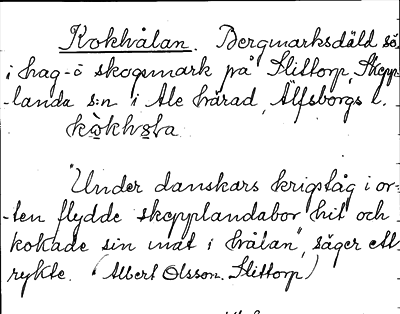 Kokhålan. Bergmarksdäld sö.
i hag- o skogsmark på Slittorp, Skepp-
-landa s:n i Ale härad, Älfsborgs l.
"Under danskars krigståg i or-
-ten flydde skepplandabor hit och
kokade sin mat i hålan", säger ett
rykte. (Albert Olsson. Slittorp)